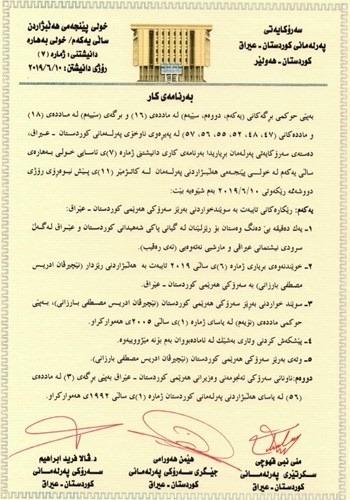 سەرۆکایەتی
پەرلەمانی کوردستان - عیراق
کوردستان - هەولێر
خولی پێنجەمی هەڵبژاردن
ساڵی یەکەم/ خولی بەهارە
دانیشتنی: ژمارە (٧)
رۆژی دانیشتن: ٢٠١٩/٦/١٠
بەرنامەی کار
بەپێی حوکمی برگەکانی (یەکەم، دووەم، سێیەم) لە ماددەی (١٦) و برگەی (سێیەم) لە ماددەی (١٨)
و ماددەکانی (٤٧، ٤٨، ٥٢، ٥٥، ٥٦، ٥٧) لە پەیرەوی ناوخۆی پەرلەمانی کوردستان - عیراق،
دەستەی سەرۆکایەتی پەرلەمان بڕیاریدا بەرنامەی کاری دانیشتنی ژمارە (٧)ی ئاسایی خولی بەهارەی
ساڵی یەکەم لە خولی پێنجەمی هەڵبژاردنی پەرلەمان لە کاتژمێر (١١)ی پێش نیوەڕۆی رۆژی
دووشەممە رێکەوتی ٢٠١٩/٦/١٠ بەم شێوەیە بێت:
یەکەم: رێکارەکانی تایبەت بە سوێندخواردنی بەرێز سەرۆکی هەرێمی کوردستان - عێراق:
١- یەک دەقیقە بێ دەنگ وەستان بۆ رێزلێنان لە گیانی پاکی شەهیدانی کوردستان و عیراق لەگەڵ
سرودی نیشتمانی عیراقی و مارشی نەتەوەیی (ئەی رەقیب).
٢- خوێندنەوەی بریاری ژمارە (٦)ی ساڵی ٢٠١٩ تایبەت بە هەڵبژاردنی رێزدار (نێچیرڤان ادریس
مصطفی بارزانی) بە سەرۆکی هەرێمی کوردستان - عێراق.
٣- سوێند خواردنی بەرێز سەرۆکی هەرێمی کوردستان (نێچیرڤان ادریس مصطفی بارزانی)، بەپێی
حوکمی ماددەی (نۆیەم) لە یاسای ژمارە (١)ی ساڵی ٢٠٠٥ی هەموارکراو.
٤- پێشکەش کردنی وتاری بەشێک لە ئامادەبووان بەم بۆنە مێژووییەوە.
٥- وتەی بەرێز سەرۆکی هەرێمی کوردستان (نێچیرڤان ادریس مصطفی بارزانی).
دووەم: ناونانی سەرۆکی ئەنجومەنی وەزیرانی هەرێمی کوردستان - عێراق بەپێی برگەی (٣) لە ماددەی (٥٦)
لە یاسای هەڵبژاردنی پەرلەمانی کوردستان ژمارە (١)ی ساڵی ١٩٩٢ی هەموارکراو.
منی نبی قهوچی
سکرتێری پەرلەمانی
کوردستان - عێراق
هێمن هەورامی
جێگری سەرۆکی پەرلەمانی
کوردستان - عێراق
د. ڤالا فرید ابراهیم
سەرۆکی پەرلەمانی
کوردستان - عێراق